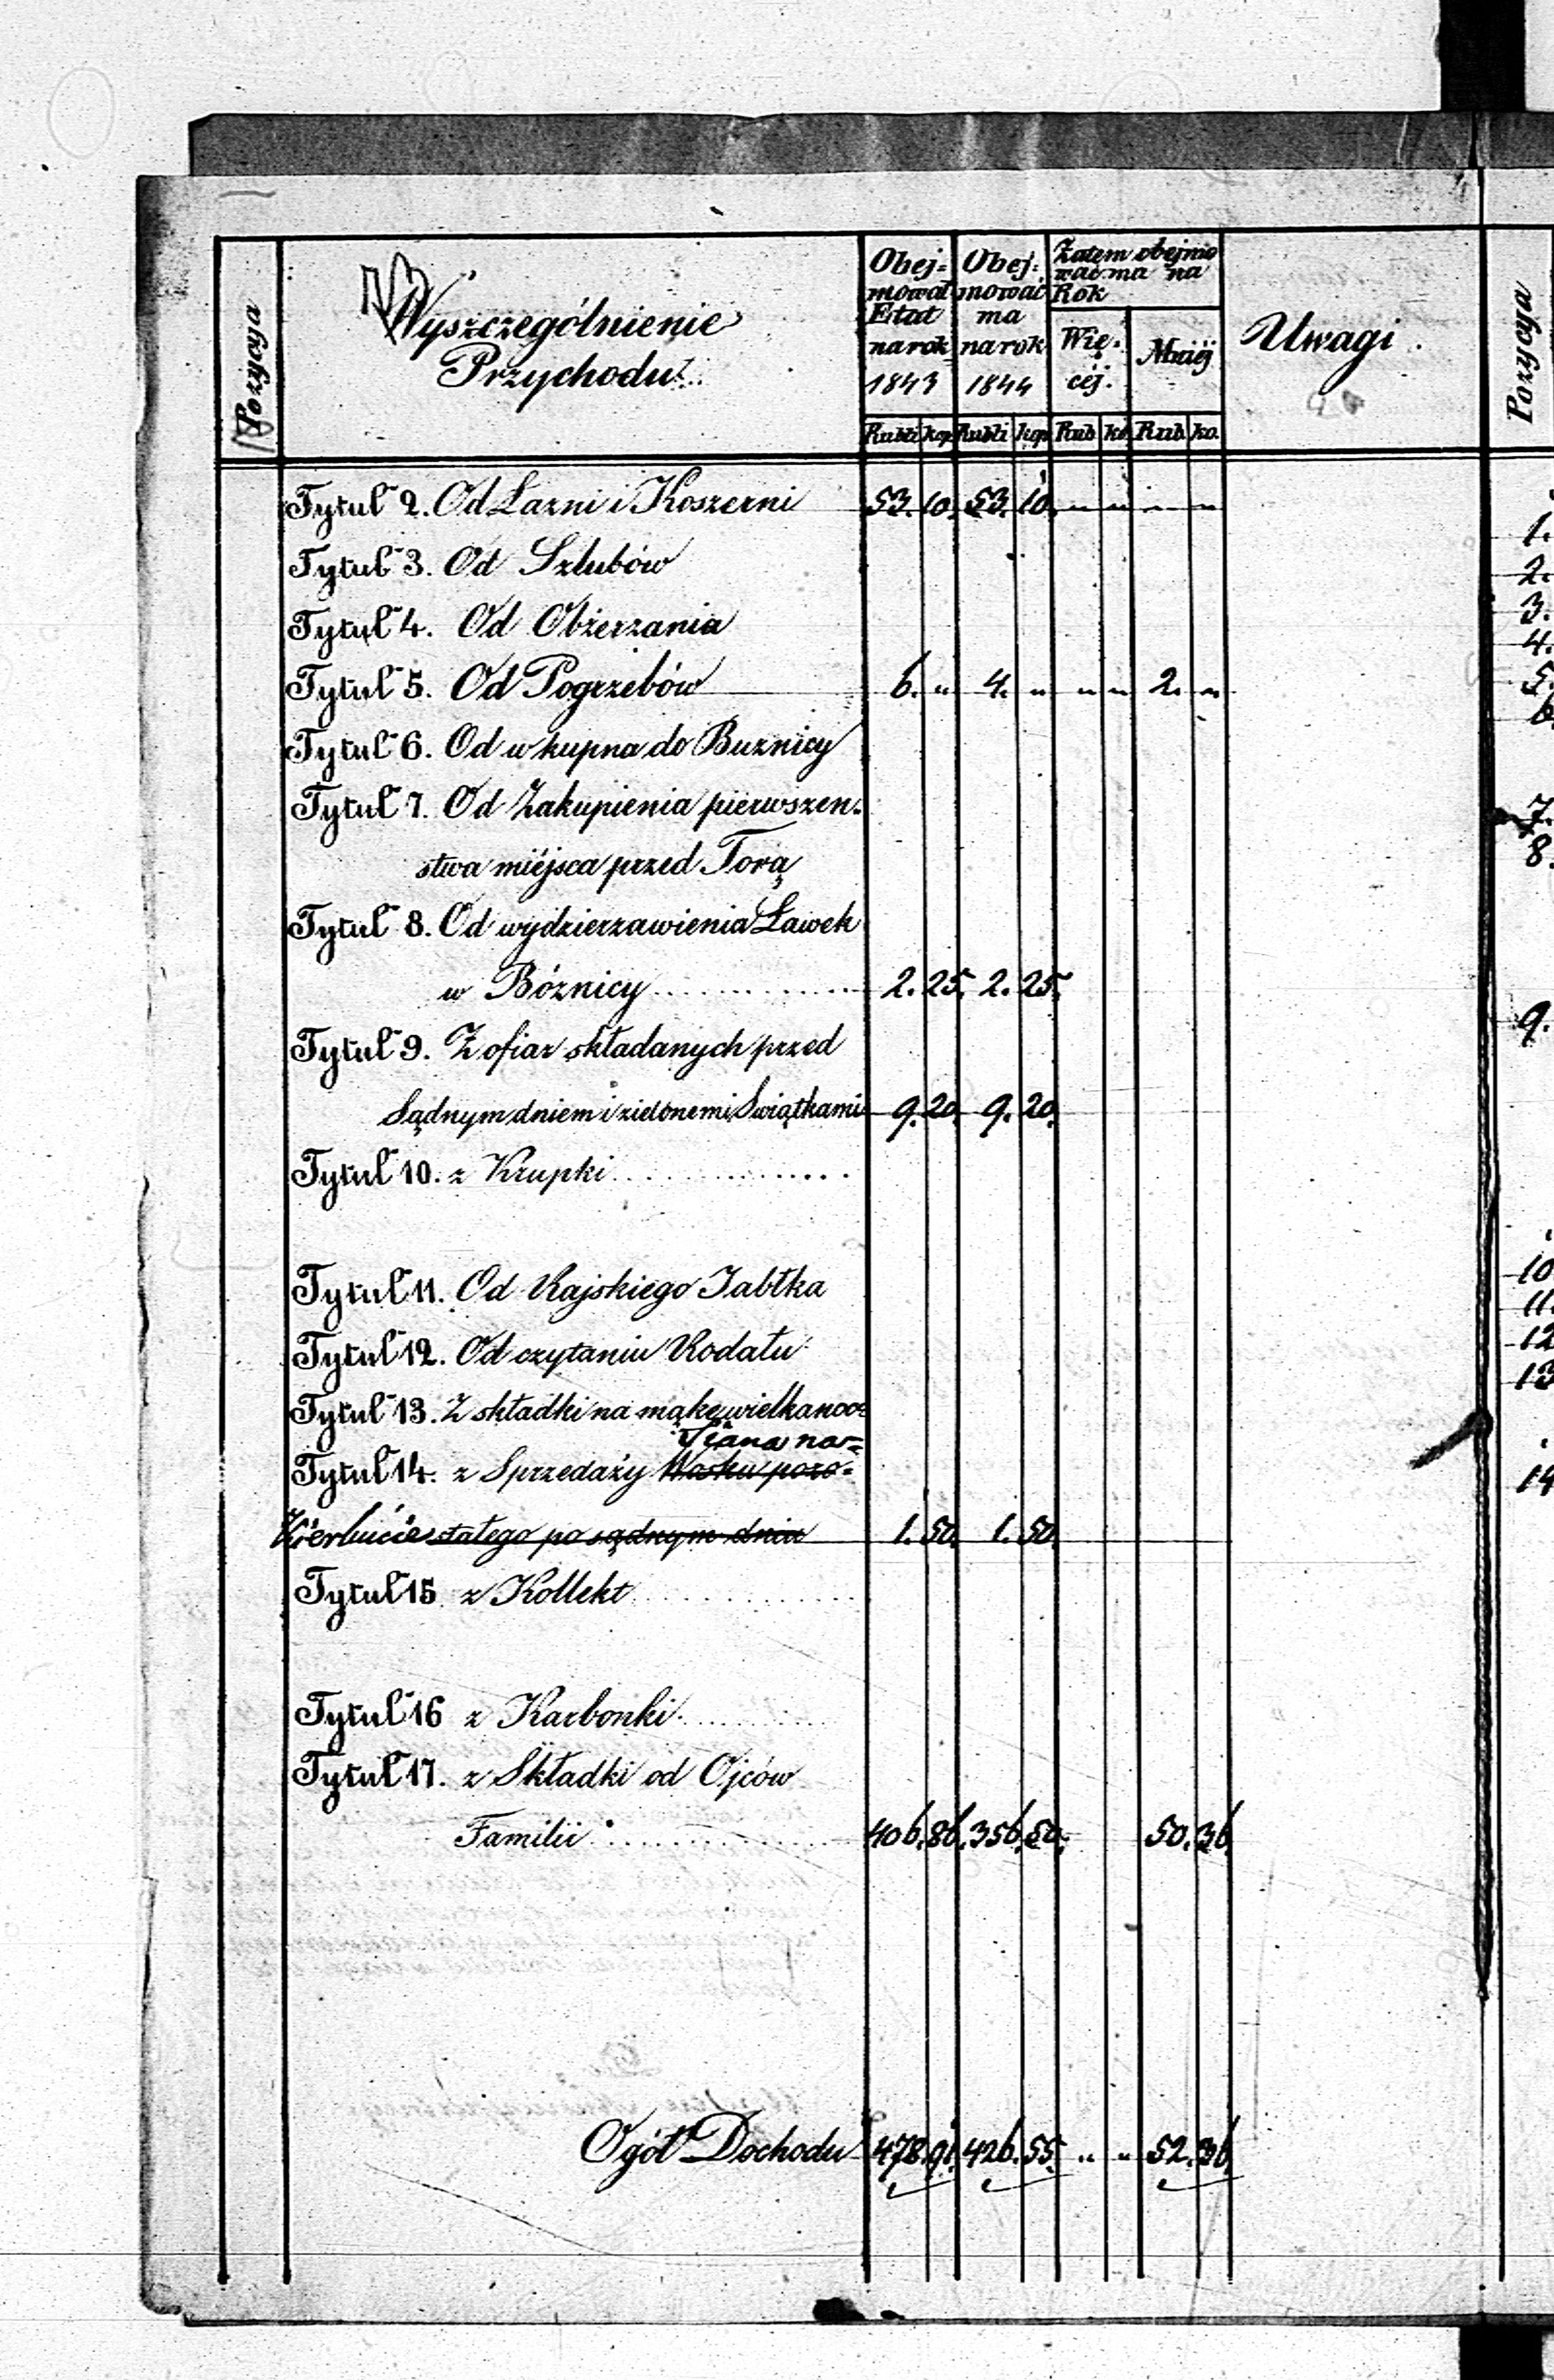 Pozycya
Wyszczególnienie
Przychodu
Obej=
mował
Etat
na rok
1843
Obej=
mować
ma
na rok
1844
Zatem obejmo
wać ma na
Rok
Wię=
céj.
Mniéj
Uwagi
Pozycya
Rubli kop Rubli kop Rub ko Rub ko.
Tytuł 2. Od Łazni i Koszerni 53. 10. 53. 10. " " " "
Tytuł 3. Od Szlubów
Tytuł 4. Od Obżerzania
Tytuł 5. Od Pogrzebów 6. " 4. " " " 2. "
Tytuł 6. Od wkupna do Buznicy
Tytuł 7. Od Zakupienia pierwszen=
stwa miéjsca przed Torą
Tytuł 8. Od wydzierzawienia Ławek
w Bóznicy 2. 25. 2. 25.
Tytuł 9. Z ofiar składanych przed
Sądnym dniem i zielonemi Swiątkami 9. 20. 9. 20.
Tytuł 10. z Krupki
Tytuł 11. Od Rajskiego Jabłka
Tytuł 12. Od czytaniu Rodału
Tytuł 13. Z składki na mąkę wielkanoc=
Siana na=
Tytuł 14. z Sprzedaży Wosku pozo=
Kierkucie stałego po sądnym dniu 1. 50. 1. 50.
Tytuł 15 z Kollekt
Tytuł 16 z Karbonki
Tytuł 17. z Składki od Ojców
Familii 406. 86. 356. 50. 50. 36
Ogół Dochodu 478. 91. 426. 55. " " 52. 36
1.
2.
3.
4.
5.
6
7.
8.
9.
10
11.
12
13
14